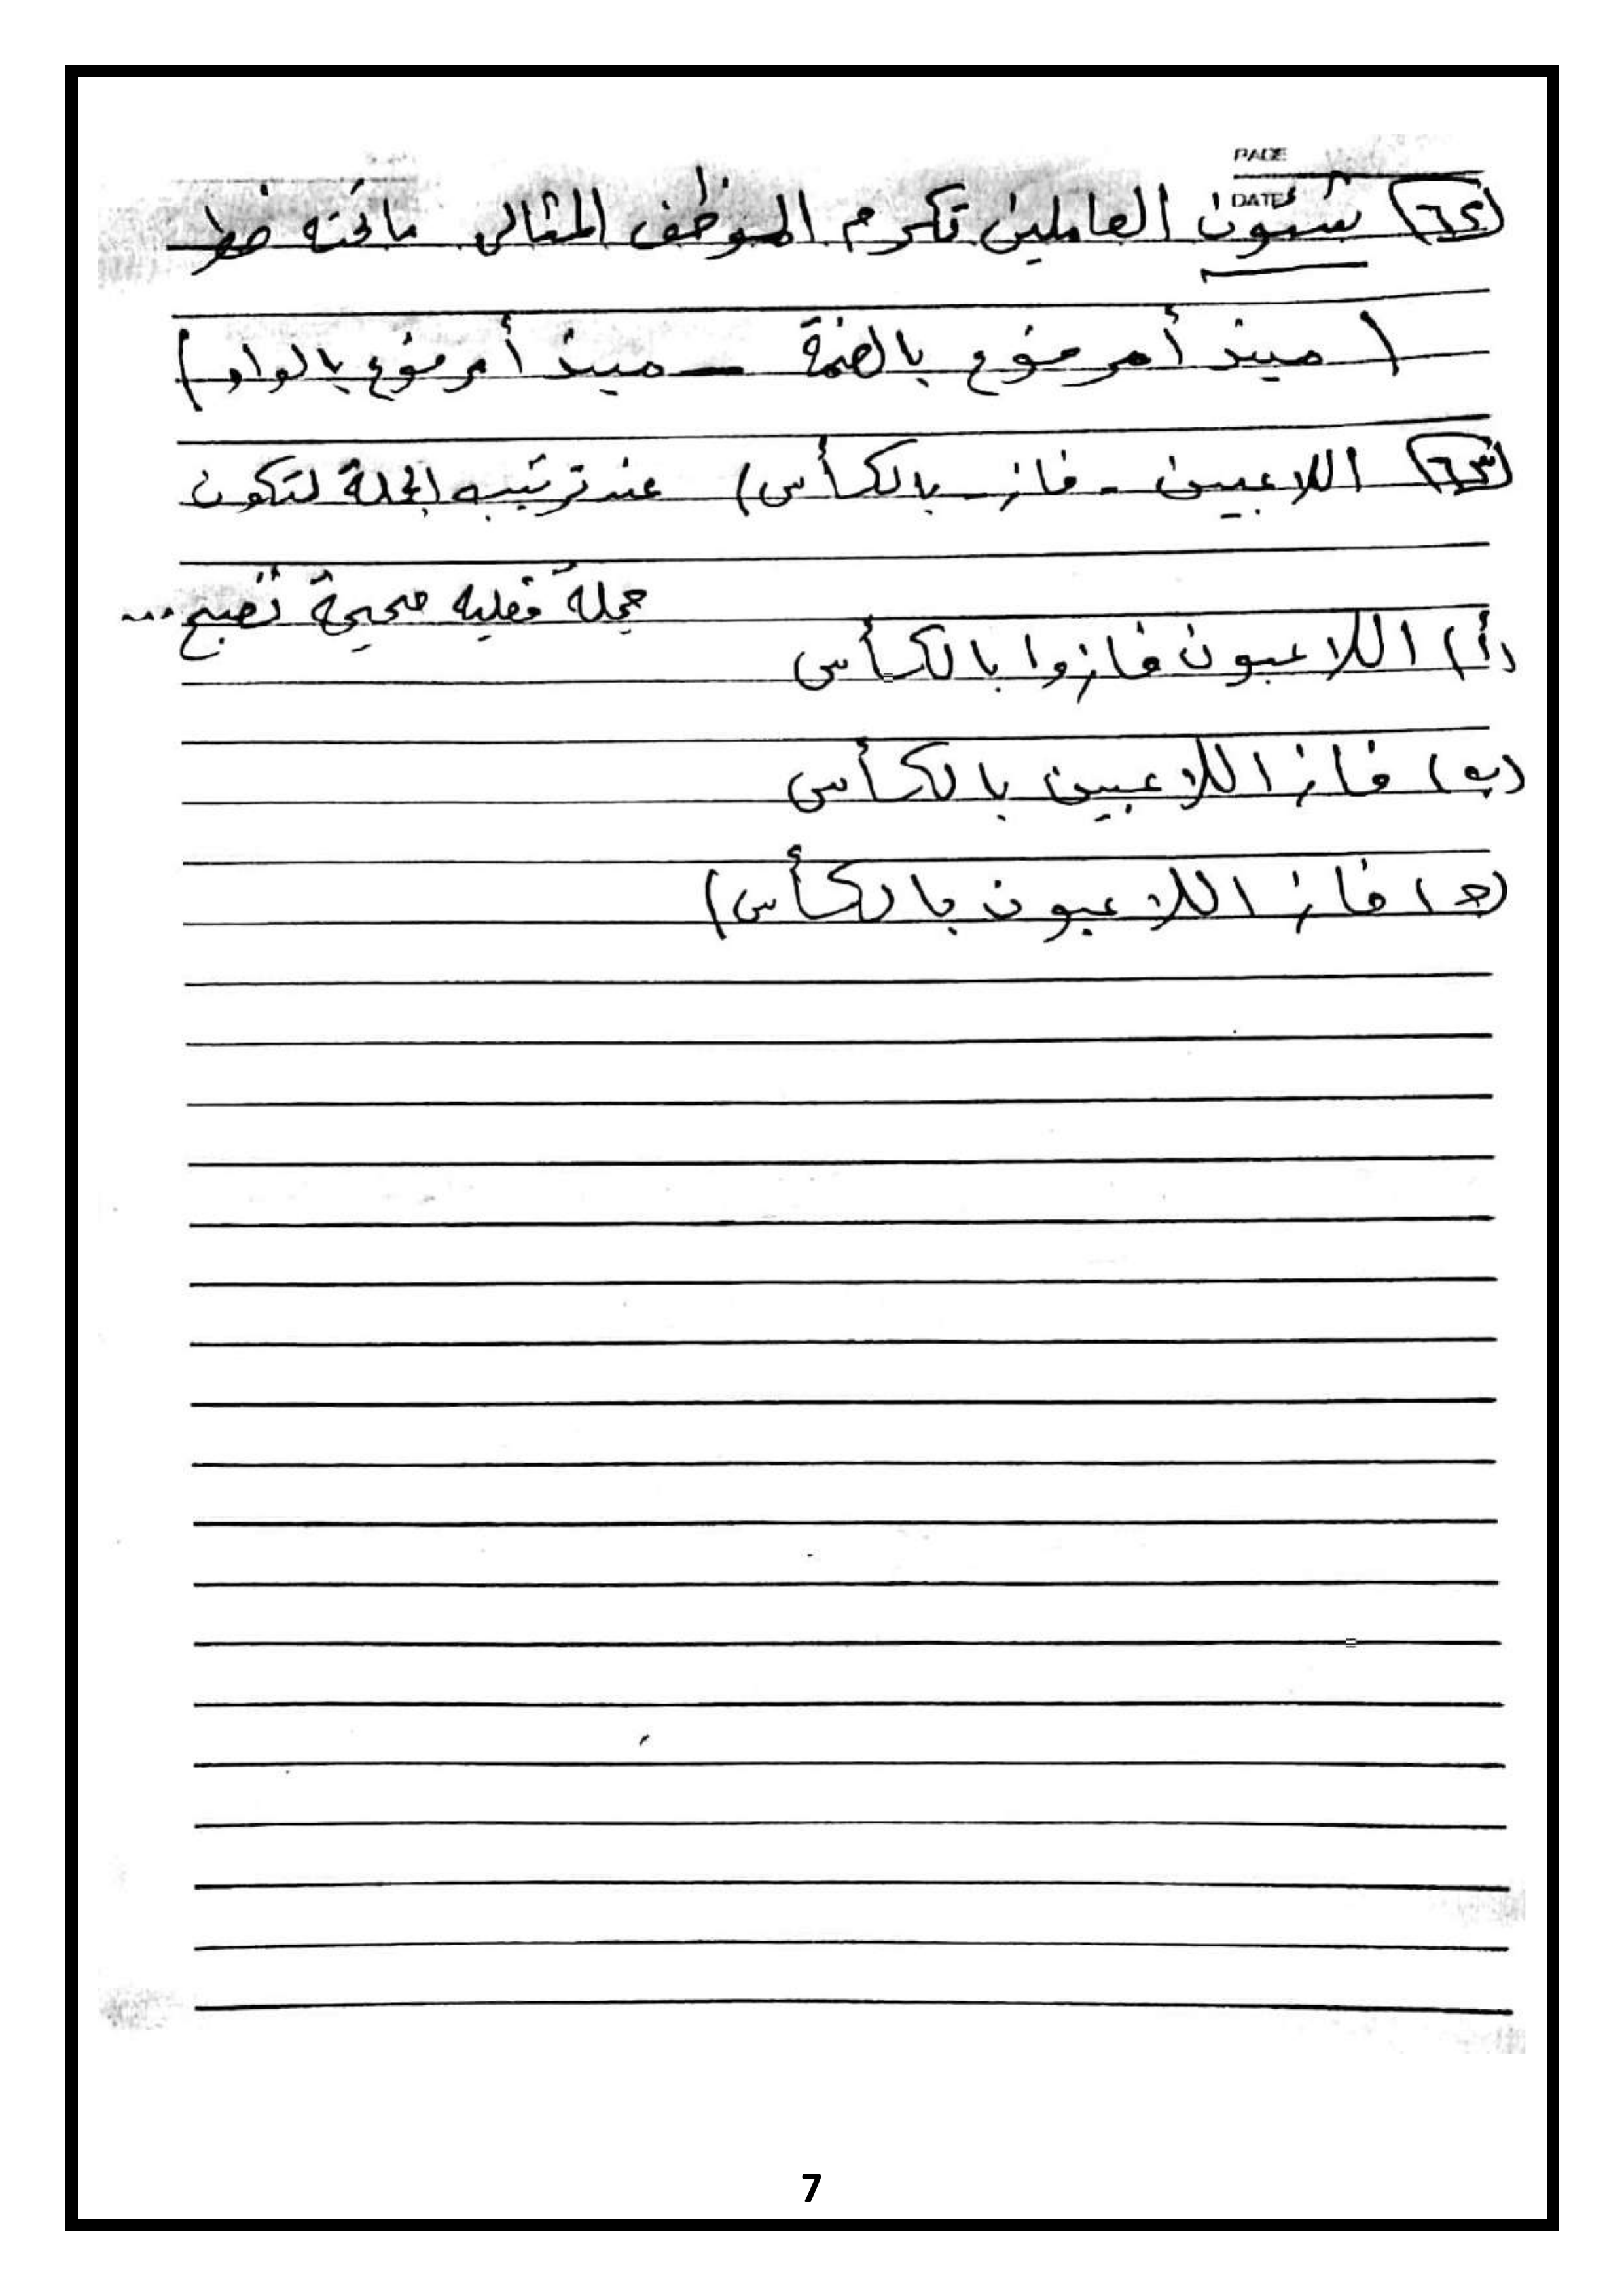 PAGE
DATE
٦٢) شئون العاملين تكرم الموظف المثالى ماتحته خط
( مبتدأ مرفوع بالضمة – مبتدأ مرفوع بالواو )
٦٣) اللاعبين - فاز - بالكأس) عند ترتيب الجملة لتكون
جملة فعليه صحيحة تصبح ...
(أ) اللاعبون فازوا بالكأس
(ب) فاز اللاعبين بالكأس
(جـ) فاز اللاعبون بالكأس)
7